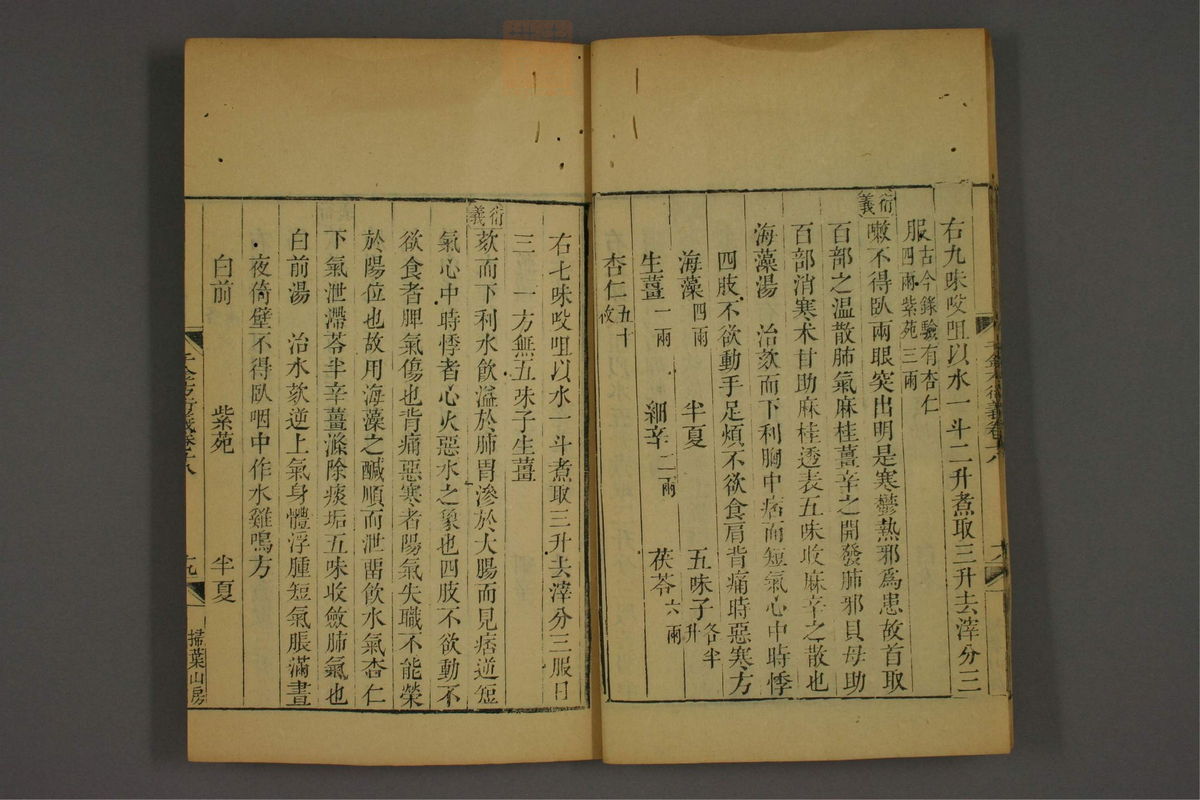 右九味㕮咀以水一斗二升煮取三升去滓分三
服古今錄驗有杏仁
四兩紫苑三兩
衍義
嗽不得臥兩眼突出明是寒鬱熱邪為患故首取
百部之溫散肺氣麻桂薑辛之開發肺邪貝母助
百部消寒朮甘助麻桂透表五味收麻辛之散也
海藻湯 治欬而下利胸中痞而短氣心中時悸
四肢不欲動手足煩不欲食肩背痛時惡寒方
海藻四兩 半夏 五味子各半升
生薑一兩 細辛二兩 茯苓六兩
杏仁五十枚
右七味㕮咀以水一斗煮取三升去滓分三服日
三 一方無五味子生薑
衍義
欬而下利水飲溢於肺胃滲於大腸而見痞逆短
氣心中時悸者心火惡水之象也四肢不欲動不
欲食者脾氣傷也背痛惡寒者陽氣失職不能榮
於陽位也故用海藻之鹹順而泄畱飲水氣杏仁
下氣泄滯苓半辛薑滌除痰垢五味收斂肺氣也
白前湯 治水欬逆上氣身體浮腫短氣脹滿晝
夜倚壁不得臥咽中作水雞鳴方
白前 紫苑 半夏
千金方衍義卷十八
十九
掃葉山房